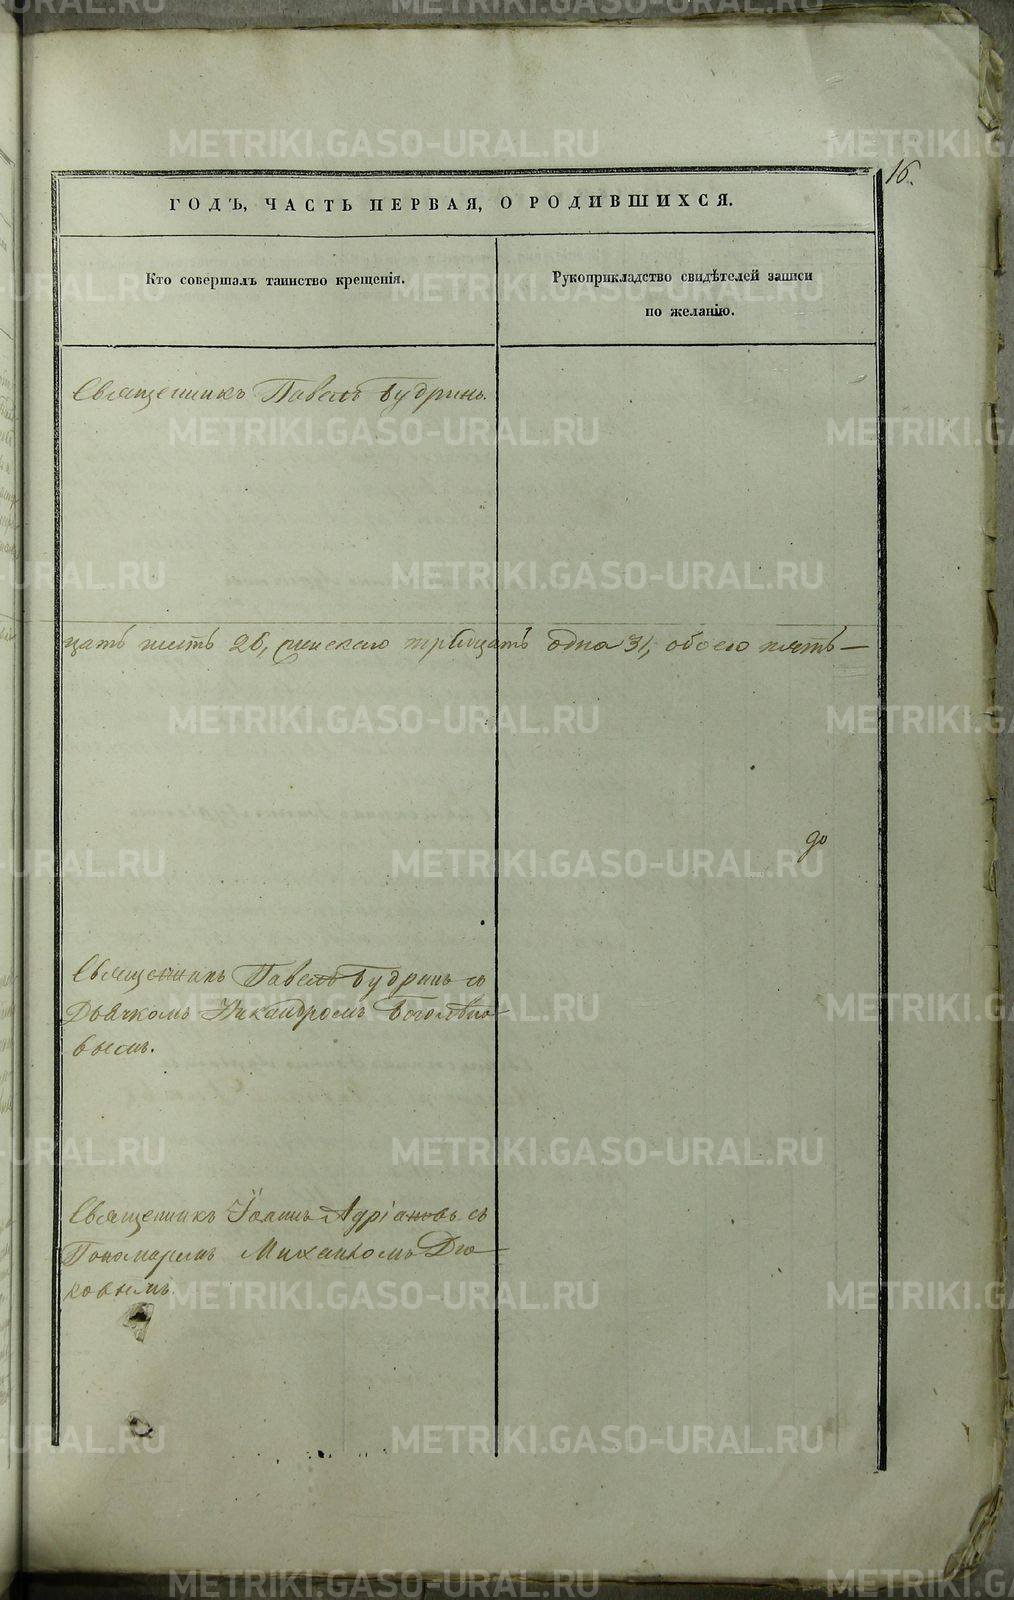 16.
ГОДЪ, ЧАСТЬ ПЕРВАЯ, О РОДИВШИХСЯ.
Кто совершалъ таинство крещенія.
Рукоприкладство свидѣтелей записи
по желанію.
Священникъ Павелъ Будринъ.
цать пять 25, женскаго тридцать одна 31, обоего пять—
до
Священникъ Павелъ Будринъ съ
Дьячкомъ Никандромъ Боголѣпо-
вымъ.
Священникъ Іоаннъ Адріановъ съ
Пономаремъ Михаиломъ Дю-
ковымъ.
METRIKI.GASO-URAL.RU